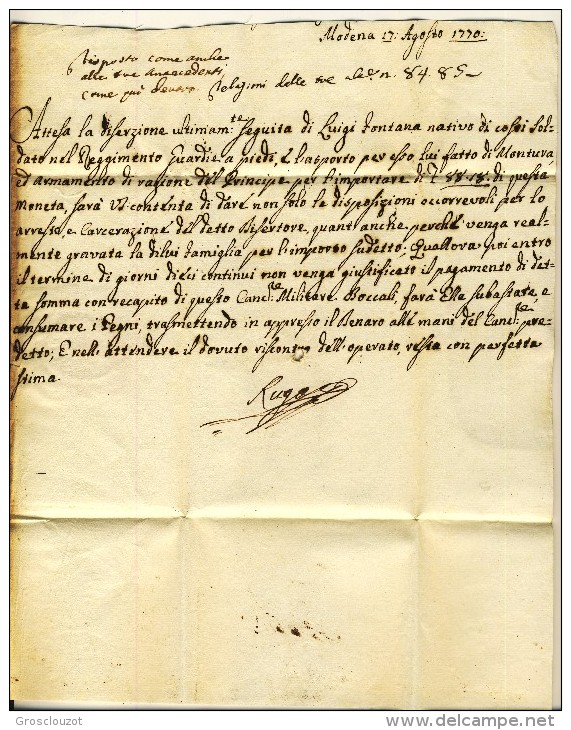 Modena 17: Agosto 1770:
Risposto come anche
alle due Antecedenti,
come qui dentro. Relazioni delle due n. 84. 85
Attesa la diserzione ultimam:te seguita di Luigi Fontana nativo di costì Sol-
dato nel Reggimento Guardie a piedi, e l'asporto per esso lui fatto di Montura,
ed armamento di ragione del Principe per l'importare di £ 88.18: di questa
moneta, sarà VS. contenta di dare non solo le disposizioni occorrevoli per lo
arresto e Carcerazione del detto Disertore, quant'anche perchè venga real-
mente gravata la di lui famiglia per l'importo sudetto; Qualora poi entro
il termine di giorni dieci continui non venga giustificato il pagamento di det-
ta somma con recapito di questo Canc:re Militare Boccali, farà Ella subastare, e
consumare i Pegni, trasmettendo in appresso il Denaro alle mani del Canc:re pre-
detto; E nell'attendere il dovuto riscontro dell'operato, resto con perfetta
stima.
Grosclouzot
delcampe.net